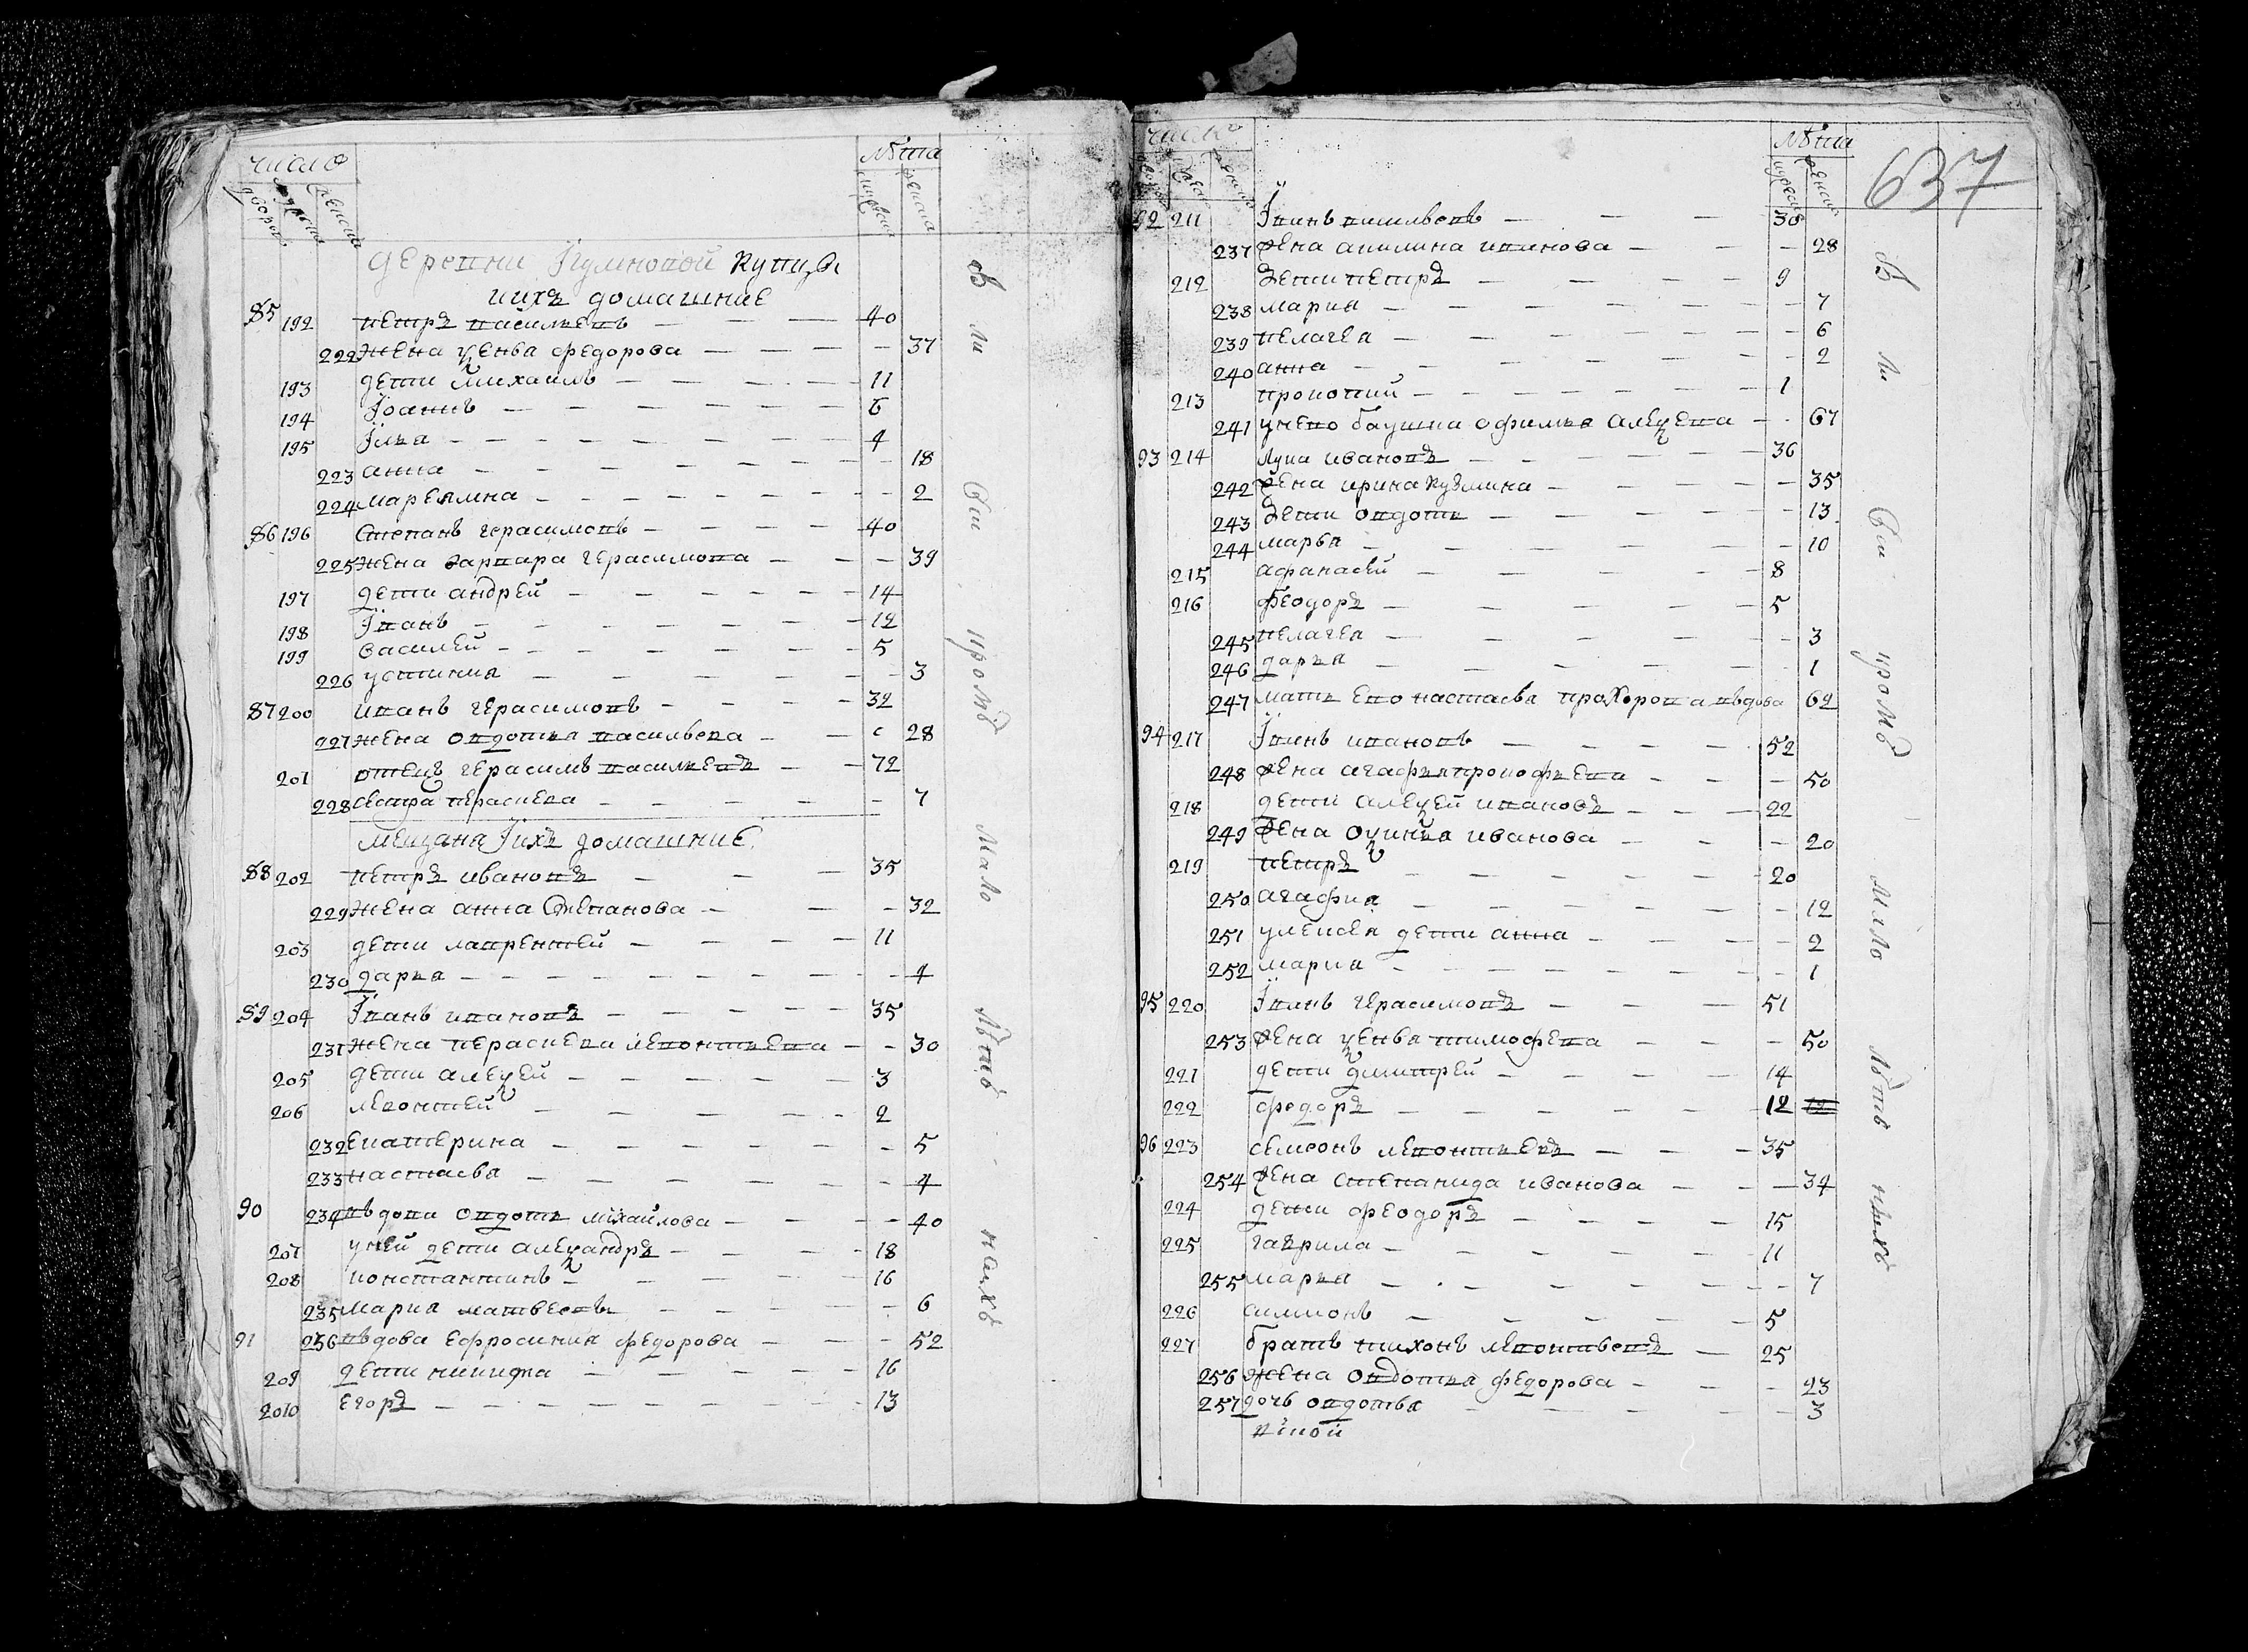 число
лѣта
дворовъ
мужеска
женска
мужеска
женска
деревни Гумновой купцы
ихъ домашние
85 192 петръ васильевъ 40
222 жена ксенья федорова 37
193 дети михаилъ 11
194 Іоаннъ 6
195 Ілья 4
223 анна 18
224 маремяна 2
86 196 Степанъ герасимовъ 40
225 жена варвара герасимова 39
197 дети андрей 14
198 Іванъ 12
199 василей 5
226 устиния 3
87 200 иванъ герасимовъ 32
227 жена овдотья васильева 28
201 отецъ герасимъ васильевъ 72
228 сестра параскева 7
мещана Іихъ домашние
88 202 петръ ивановъ 35
229 жена анна Степанова 32
203 дети лаврентей 11
230 дарья 4
89 204 Іванъ ивановъ 35
231 жена параскева левонтьева 30
205 дети алексей 3
206 левонтей 2
232 Екатерина 5
233 настасья 4
90 234 вдова овдотья михайлова 40
207 уней дети александръ 18
208 константинъ 16
235 Мариа матвеевъ 6
91 236 вдова ефросиния федорова 52
209 дети никифа 16
2010 Егоръ 13
В ли сей кромѣ мало лѣтнихъ
число
лѣта
637
92 211 Іванъ васильевъ 30
237 жена акилина иванова 28
212 Дети петръ 9
238 мариа 7
239 пелагея 6
240 анна 2
213 прокопий 1
241 унево баушка офимья алексева 67
93 214 лука ивановъ 36
242 жена ирина кузмина 35
243 Дети овдотья 13
244 марья 10
215 афанасей 8
216 феодоръ 5
245 пелагея 3
246 дарья 1
247 мать ево настасья прохорова вдова 62
94 217 Іванъ ивановъ 52
248 жена агафья прокофьева 50
218 дети алексей ивановъ 22
249 жена оксинья иванова 20
219 петръ 20
250 агафиа 12
251 уалексея дети анна 2
252 мариа 1
95 220 Іванъ герасимовъ 51
253 жена ксенья тимофева 50
221 дети димитрей 14
222 федоръ 12
96 223 семеонъ левонтьевъ 35
254 жена степанида иванова 34
224 дети феодоръ 15
225 гаврила 11
255 марья 7
226 симионъ 5
227 братъ тихонъ левонтьевъ 25
256 жена овдотья федорова 23
257 дочь овдотья 3
В ли сей кромѣ мало лѣтнихъ